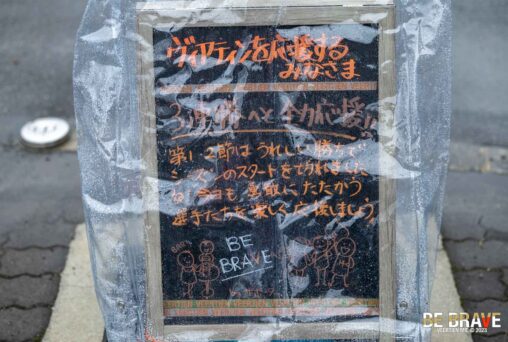 ヴィアティンを応援する
みなさま
3連勝へと全力応援
第1、2節はうれしい勝
のスタートを切れました
今日も勇敢にたたかう
選手たちを楽しく応援しましょう
BE
BRAVE
BE BRAVE